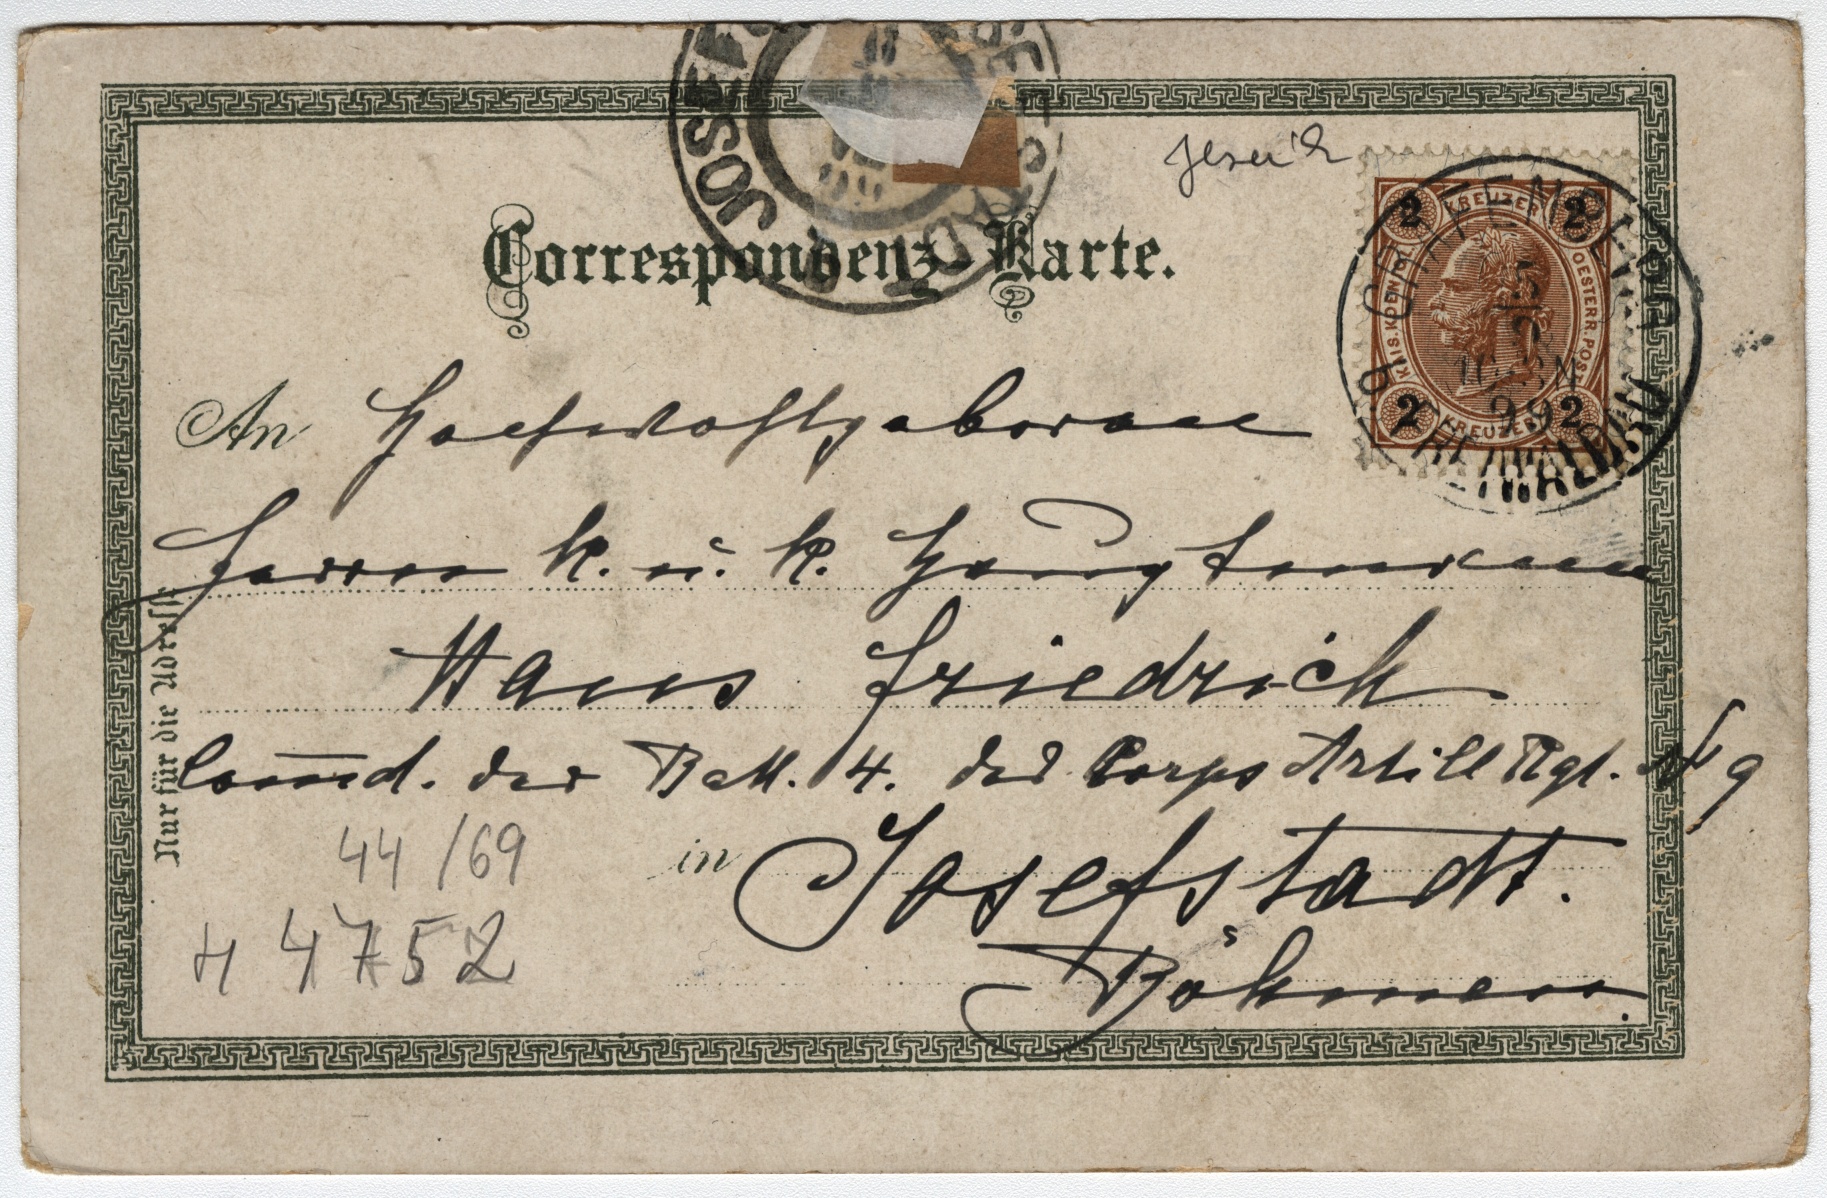 Correspondenz-Karte.
Jesenik
2 KREUZER 2
KAIS. KOEN. OESTERR. POST
2 KREUZER 2
GRÄFENBERG
FREIWALDAU
99
JOSEFSTADT
An Hochwohlgeboren
Herrn k. u. k. Hauptmann
Hans Friedrich
Com̅d. der Batt. 4. des Corps Artill Rgt. Nr 9
in Josefstadt.
Böhmen.
Nur für die Adresse
44/69
H 4752